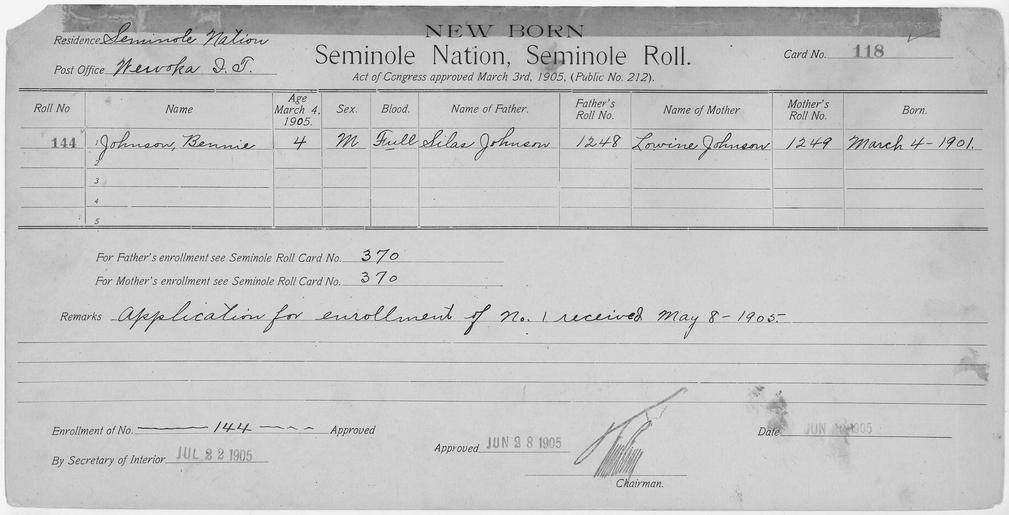 NEW BORN
Residence Seminole Nation
Seminole Nation, Seminole Roll.
Card No. 118
Post Office Wewoka I.T.
Act of Congress approved March 3rd, 1905, (Public No. 212).
Roll No Name Age March 4, 1905. Sex. Blood. Name of Father. Father's Roll No. Name of Mother Mother's Roll No. Born.
144 1 Johnson, Bennie 4 M Full Silas Johnson 1248 Lowine Johnson 1249 March 4-1901.
2
3
4
5
For Father's enrollment see Seminole Roll Card No. 370
For Mother's enrollment see Seminole Roll Card No. 370
Remarks Application for enrollment of No. 1 received May 8-1905.
Enrollment of No. 144 Approved
By Secretary of Interior JUL 22 1905
Approved JUN 28 1905
Chairman.
Date JUN 1905